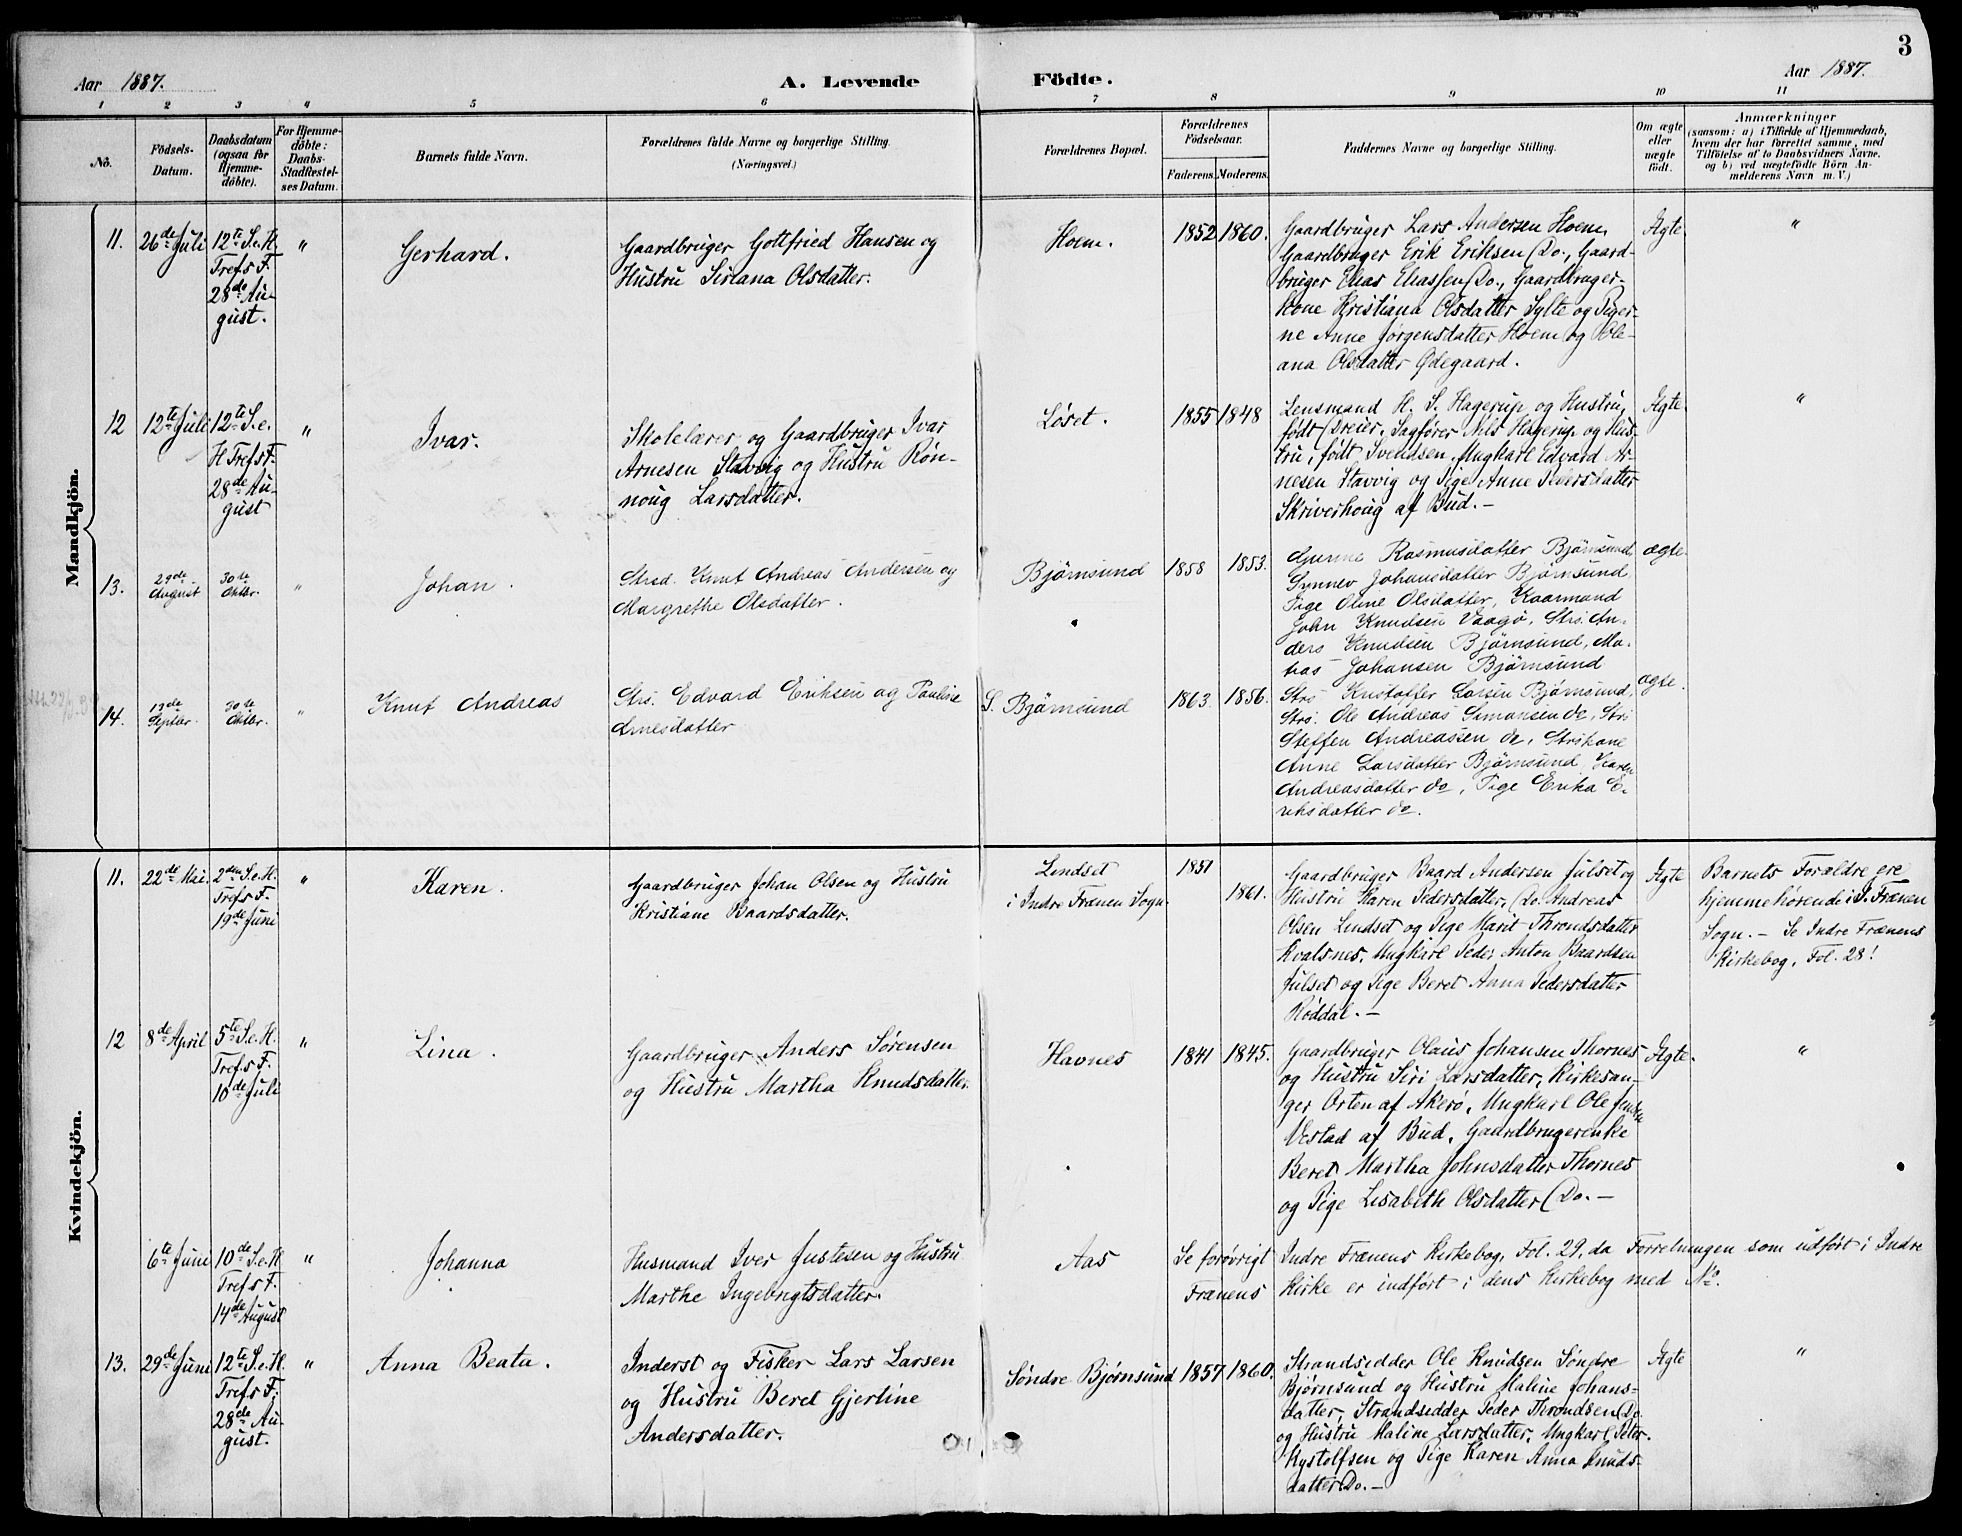 3
Aar 1887.
A. Levende
Födte.
Aar 1887.
1 2 3 4 5 6 7 8 9 10 11
No.
Födsels-
Datum.
Daabsdatum
(ogsaa for
Hjemme-
döbte).
For Hjemme-
döbte:
Daabs-
Stadfæstel-
ses Datum.
Barnets fulde Navn.
Forældrenes fulde Navne og borgerlige Stilling.
(Næringsvei.)
Forældrenes Bopæl.
Forældrenes
Födselsaar.
Faderens. Moderens.
Faddernes Navne og borgerlige Stilling.
Om ægte
eller
uægte
födt.
Anmærkninger
(saasom: a) i Tilfælde af Hjemmedaab,
hvem der har forrettet samme, med
Tilföielse af to Daabsvidners Navne,
og b) ved uægtefödte Börn An-
melderens Navn m. V.)
Mandkjön.
11.
26de Juli
12te S. e. H.
Tref.s F.
28de Au-
gust.
"
Gerhard.
Gaardbruger Gottfried Hansen og
Hustru Siriana Olsdatter.
Hoem.
1852 1860.
Gaardbruger Lars Andersen Hoem,
Gaardbruger Erik Eriksen Do., Gaard-
bruger Elias Eliassen Do., Gaardbruger-
kone Kristiana Olsdatter Sylte og Piger-
ne Anne Jørgensdatter Hoem og Ole-
ana Olsdatter Ødegaard.
Ægte.
"
12
12te Juli
12te S. e.
H. Tref.s F.
28de Au-
gust
"
Ivar.
Skolelærer og Gaardbruger Ivar
Arnesen Stavvig og Hustru Røn-
noug Larsdatter.
Løset.
1855 1848
Lensmand H. S. Hagerup og Hustru,
født Dreier, Sagfører Nils Hagerup og Hus-
tru, født Svendsen, Ungkarl Edvard Ar-
nesen Stavvig og Pige Anne Pedersdatter
Skriverhoug af Bud.-
Ægte.
"
13.
29de
August
30te
Oktbr.
"
Johan.
Strsd. Knut Andreas Andersen og
Margrethe Olsdatter.
Bjørnsund
1858 1853.
Gurine Rasmusdatter Bjørnsund,
Synnev Johansdatter Bjørnsund
Pige Oline Olsdatter, Kaarmand
John Knudsen Vaagø, Strs. An-
ders Knudsen Bjørnsund, Ma-
tias Johansen Bjørnsund
ægte.
14.
13de
Septbr.
30te
Oktbr.
"
Knut Andreas
Strs. Edvard Eriksen og Pauline
Arnesdatter
S. Bjørnsund
1863. 1856.
Strs. Kristoffer Larsen Bjørnsund,
Strs. Ole Andreas Simonsen do, Strs
Steffen Andreassen do, Strskone
Anne Larsdatter Bjørnsund, Karen
Andreasdatter do, Pige Erika E-
riksdatter do.
ægte.
Kvindekjön.
11.
22de Mai.
2den S. e. H.
Tref.s F.
19de Juni
"
Karen.
Gaardbruger Johan Olsen og Hustru
Kristiane Baardsdatter.
Lindset
i Indre Frænen Sogn.
1851
1861.
Gaardbruger Baard Andersen Julset og
Hustru Karen Pedersdatter, Do. Andreas
Olsen Lindset og Pige Marit Throndsdatter
Kvalsnes, Ungkarl Peder Anton Baardsen
Julset og Pige Beret Anna Pedersdatter
Røddal.-
Ægte
Barnets Forældre ere
hjemmehørende i I. Frænen
Sogn.- Se Indre Frænens
Kirkebog, Fol. 28!
12
8de April
5te S. e. H.
Tref.s F.
10de Juli
"
Lina.
Gaardbruger Anders Sørensen
og Hustru Martha Knudsdatter.
Havnes
1841 1845.
Gaardbruger Olaus Johansen Thornes
og Hustru Siri Larsdatter, Kirkesan-
ger Orten af Akerø, Ungkarl Ole Jensen
Vestad af Bud, Gaardbrugerenke
Beret Martha Johnsdatter Thornes
og Pige Lisabeth Olsdatter Do.-
Ægte.
"
6te Juni
10de S. e. H
Tref.s F.
14de August
"
Johanna
Husmand Iver Justesen og Hustru
Marthe Ingebrigtsdatter.
Aas
Se forøvrigt Indre Frænens Kirkebog, Fol. 29, da Forretningen som udført i Indre
Frænens Kirke er indført i dens Kirkebog med No.
13.
29de Juni
12te S. e. H.
Tref.s F.
28de Au-
gust.
"
Anna Beata.
Inderst og Fisker Lars Larsen
og Hustru Beret Gjertine
Andersdatter.
Søndre Bjørnsund
1857 1860.
Strandsidder Ole Knudsen Søndre
Bjørnsund og Hustru Maline Johans-
datter, Strandsidder Peder Throndsen Do.
og Hustru Maline Larsdatter, Ungkarl Peter
Kystolfsen og Pige Karen Anna Knuds-
datter Do.-
Ægte
"